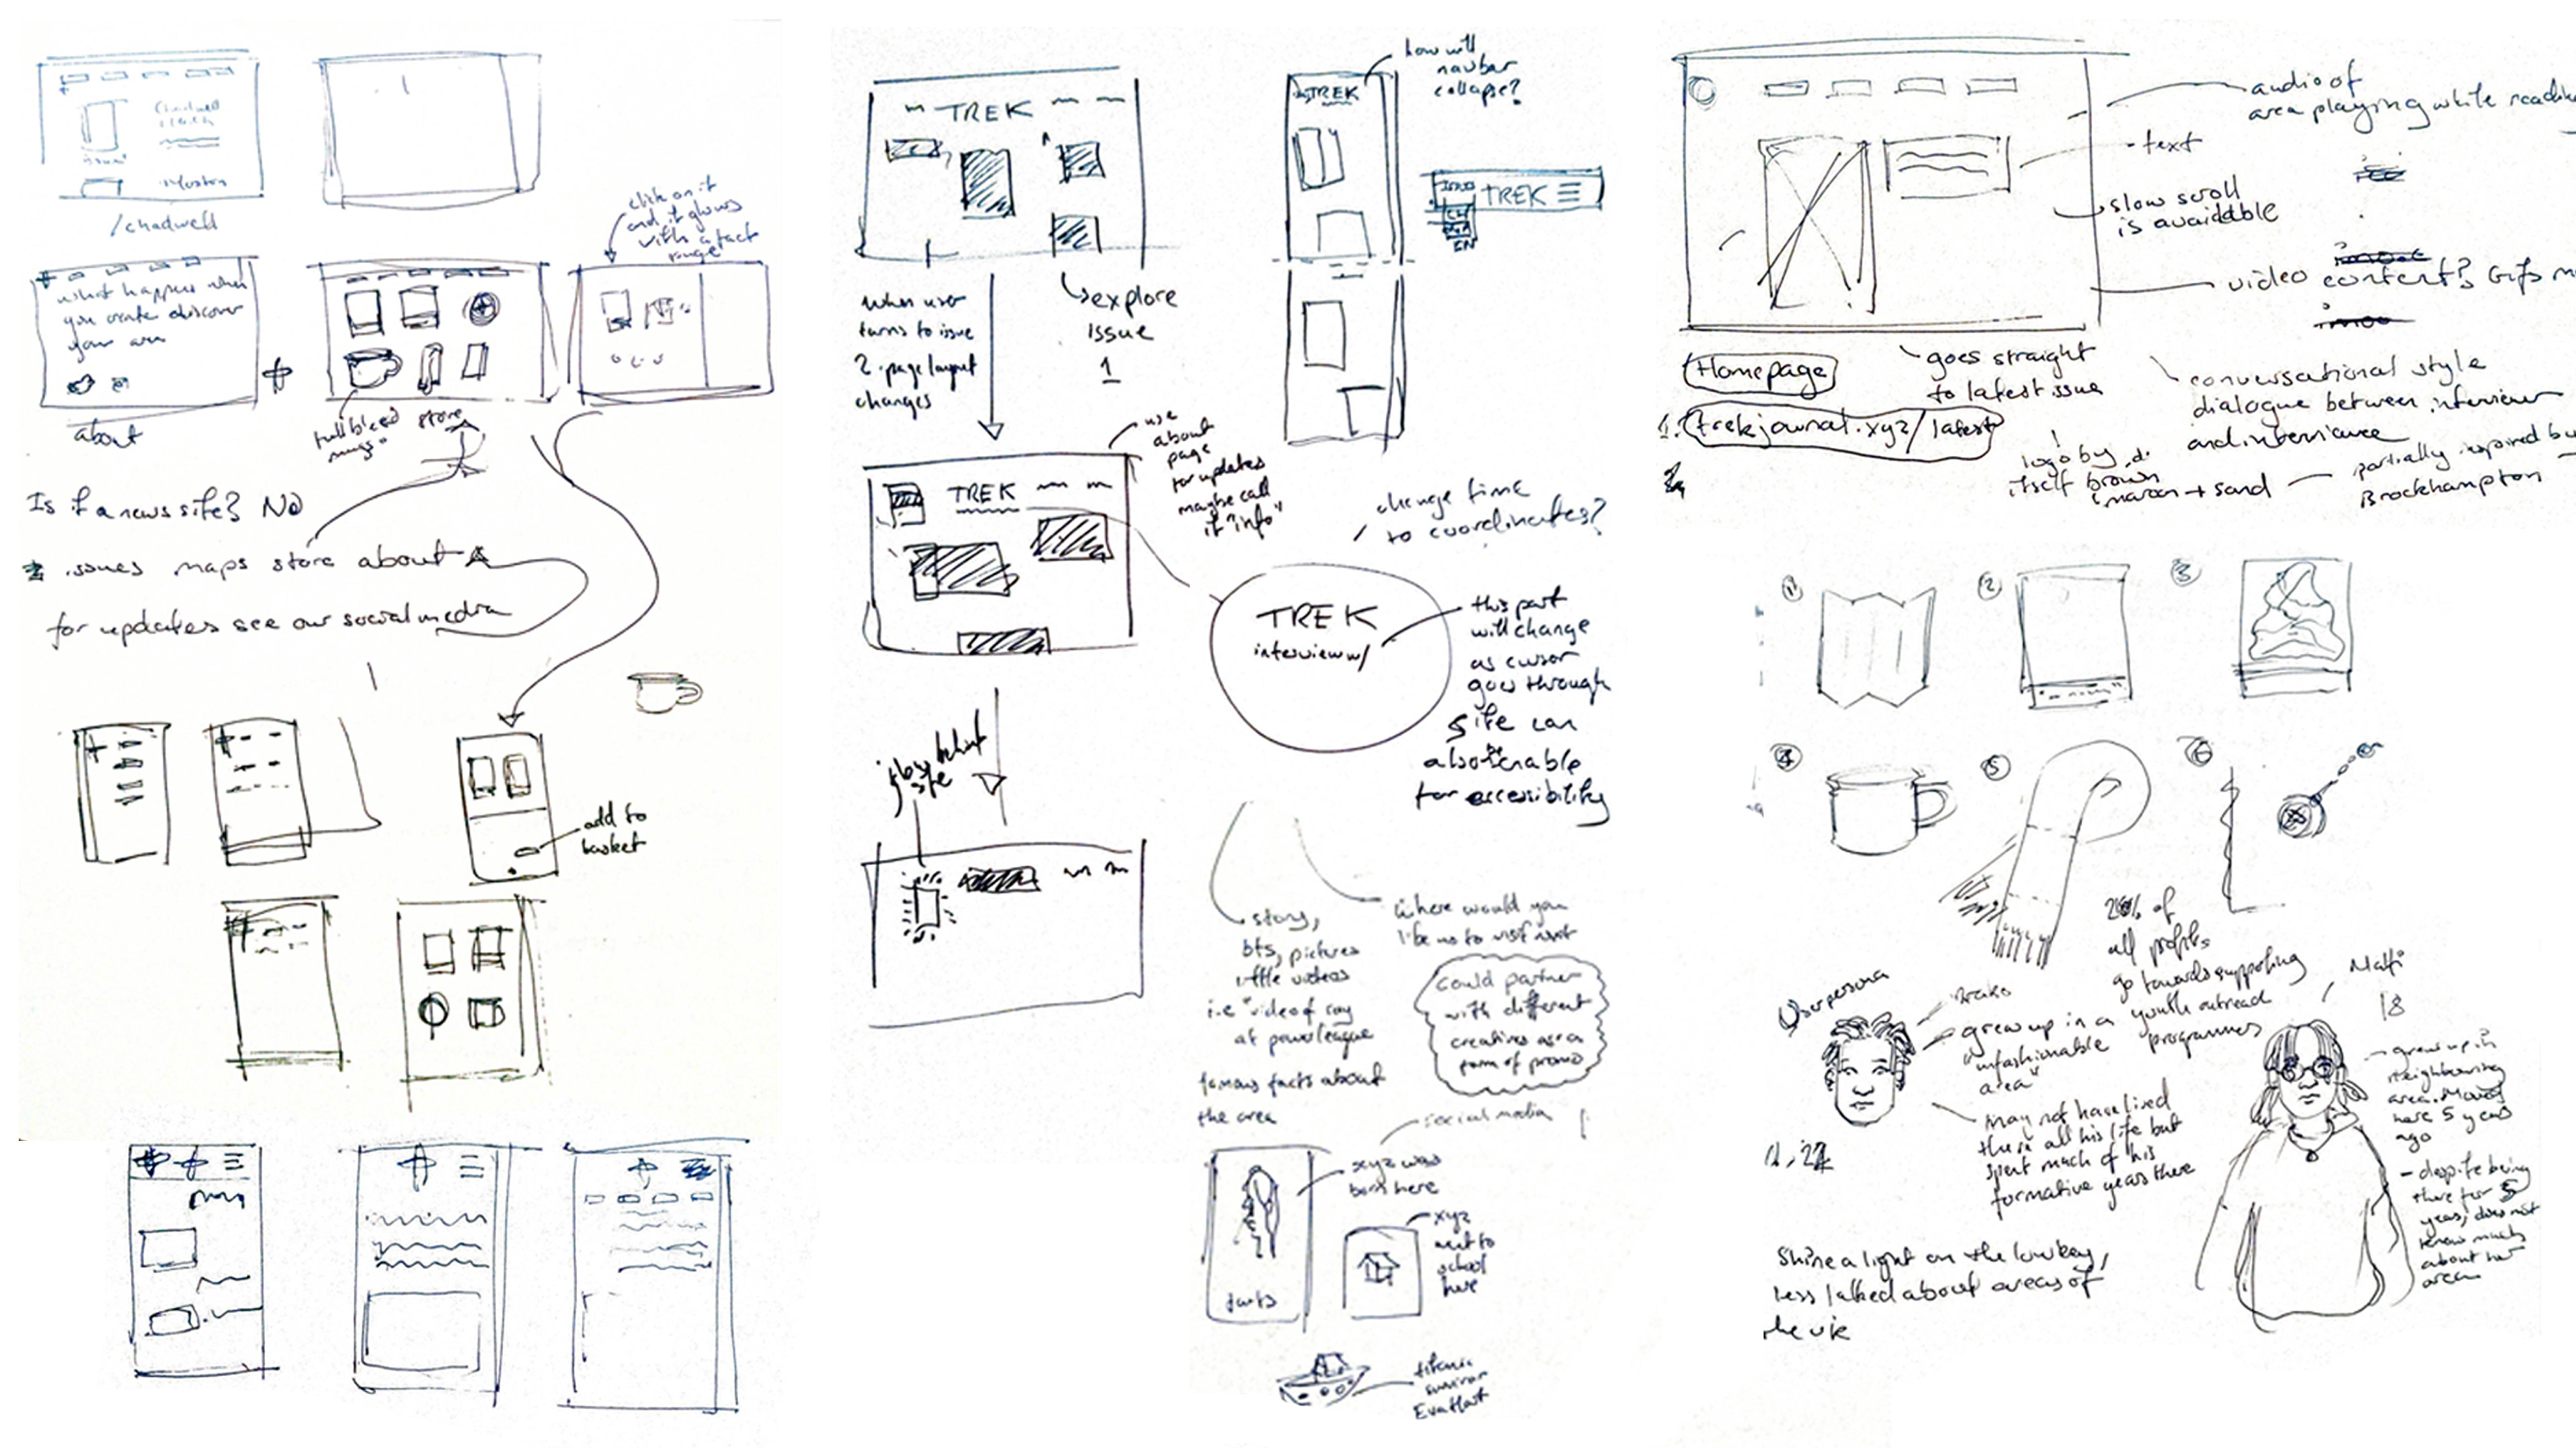 Chadwell
Heath
issue 1
/chadwell
click on it
and it glows
with a fact
what happens when
you create discover
your area
about
full bleed
mugs
store
Is it a news site? No
issues maps store about
for updates see our social media
add to
basket
TREK
when user
turns to issue
2. page layout
changes
explore
issue
1
how will
navbar
collapse?
TREK
TREK
EN
use
about
page
for updates
maybe call
it "info"
TREK
change time
to coordinates?
TREK
interview w/
this part
will change
as cursor
goes through
site can
also enable
for accessibility
glow behind
site
story,
bts, pictures
little videos
i.e "video of ray
at powerleague
famous facts about
the area
where would you
like us to visit next
could partner
with different
creatives as a
form of promo
social media
xyz was
born here
facts
xyz
went to
school
here
titanic
survivor
Eva Hart
audio of
area playing while
text
slow scroll
is available
video content? Gifs
Homepage
goes straight
to latest issue
1. trekjournal.xyz/latest
conversational style
dialogue between interviewer
and interviewee
logo by
itself brown
maroon + sand
partially inspired by
Brockhampton
1
2
3
4
5
6
20% of
all profits
go towards supporting
youth outreach
programmes
User persona
grew up in a
"unfashionable
area"
may not have lived
there all his life but
spent much of his
formative years there
Malfi
18
grew up in
neighbouring
area. Moved
here 5 years
ago
- despite being
there for 5
years, does not
know much
about her
area
Shine a light on the lowkey,
less talked about areas of
the uk